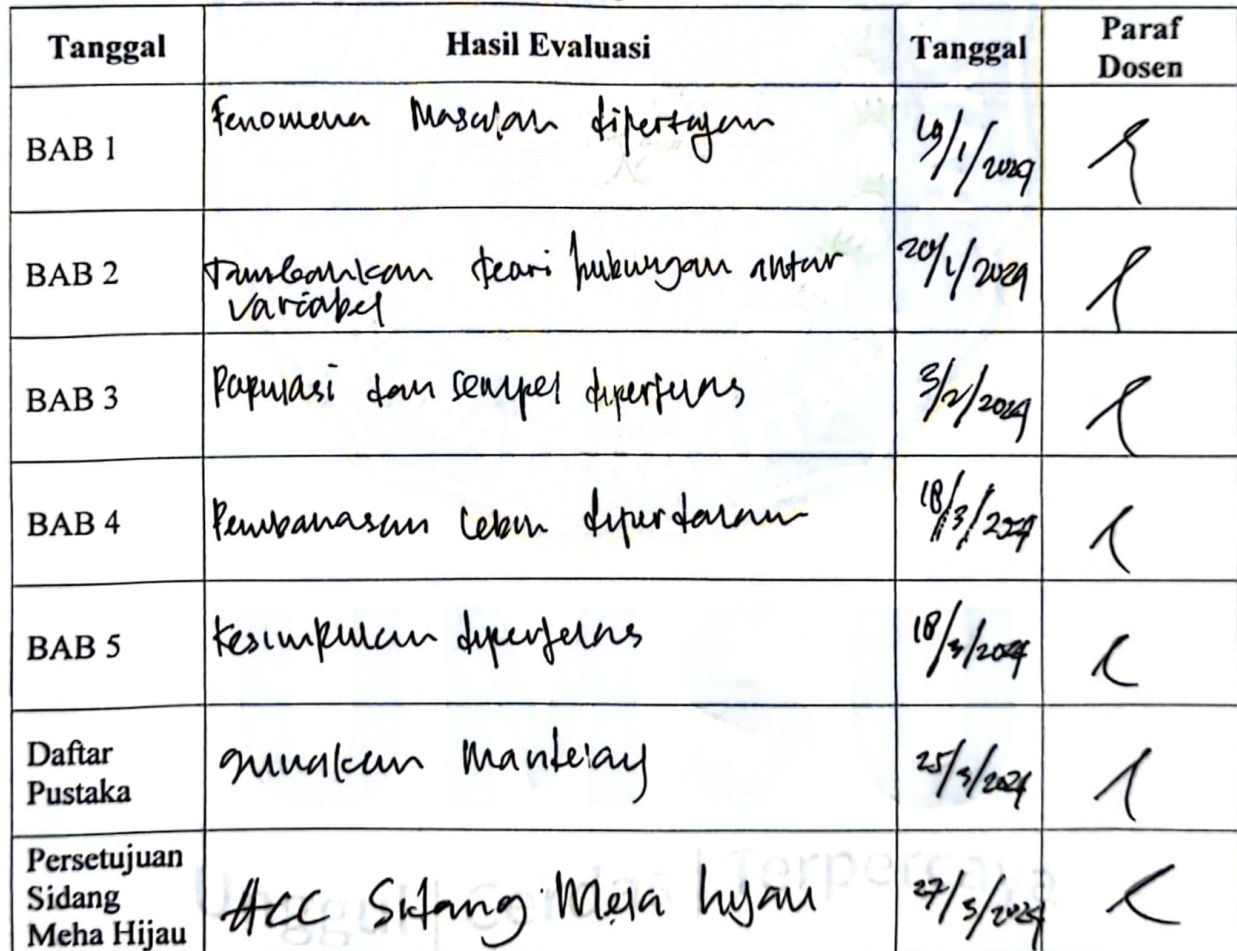 Tanggal Hasil Evaluasi Tanggal Paraf Dosen
BAB 1 Fenomena Masalah dipertajam 19/1/2024
BAB 2 tambahkan teori hubungan antar 20/1/2024
variabel
BAB 3 Populasi dan sempel diperjelas 3/2/2024
BAB 4 Pembahasan lebih diperdalam 18/3/2024
BAB 5 kesimpulan diperjelas 18/3/2024
Daftar Pustaka gunakan Mandeley 25/3/2024
Persetujuan
Sidang
Meha Hijau Acc Sidang Meja hijau 27/3/2024
Unggul | Cerdas | Terpercaya